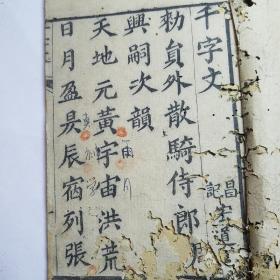 千字文
勑員外散騎侍郎周
興嗣次韻
天地元黃宇宙洪荒
日月盈昃辰宿列張